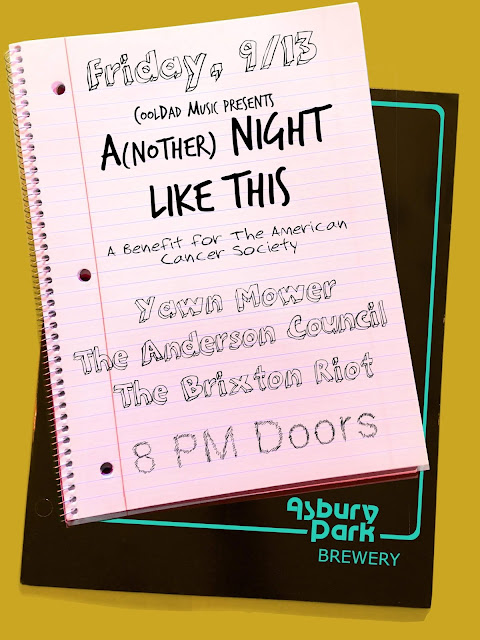 Friday, 9/13
CoolDad Music presents
A(nother) Night
Like This
A Benefit for The American
Cancer Society
Yawn Mower
The Anderson Council
The Brixton Riot
8 PM Doors
Asbury
Park
BREWERY